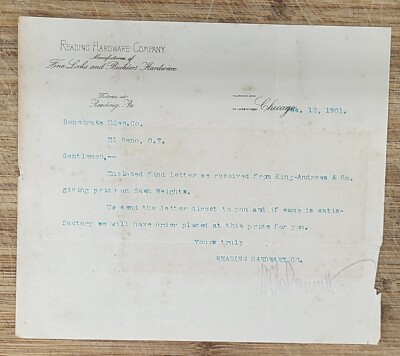 READING HARDWARE COMPANY
Manufacturers of
Fine Locks and Builders Hardware
Factories at
Reading, Pa.
Chicago 12, 1901.
Bonebrake Hdwe.Co.
El Reno, O.T.
Gentlemen,--
Enclosed find letter we received from King-Andrews & Co.
giving price on Sash Weights.
We send the letter direct to you and if same is satis-
factory we will have order placed at this price for you.
Yours truly
READING HARDWARE CO.